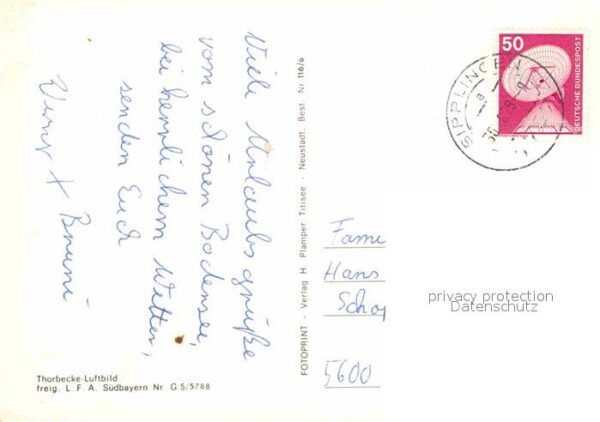 Viele Urlaubsgrüße
vom schönen Bodensee,
bei herrlichem Wetter,
senden Euch
+ Bruni
Thorbecke-Luftbild
freig. L. F. A. Südbayern Nr. G 5/5788
FOTOPRINT - Verlag H. Plamper Titisee - Neustadt. Best. Nr. 116/6
50
DEUTSCHE BUNDESPOST
SIPPLINGEN
Fami
Hans
Scho
5600
privacy protection
Datenschutz